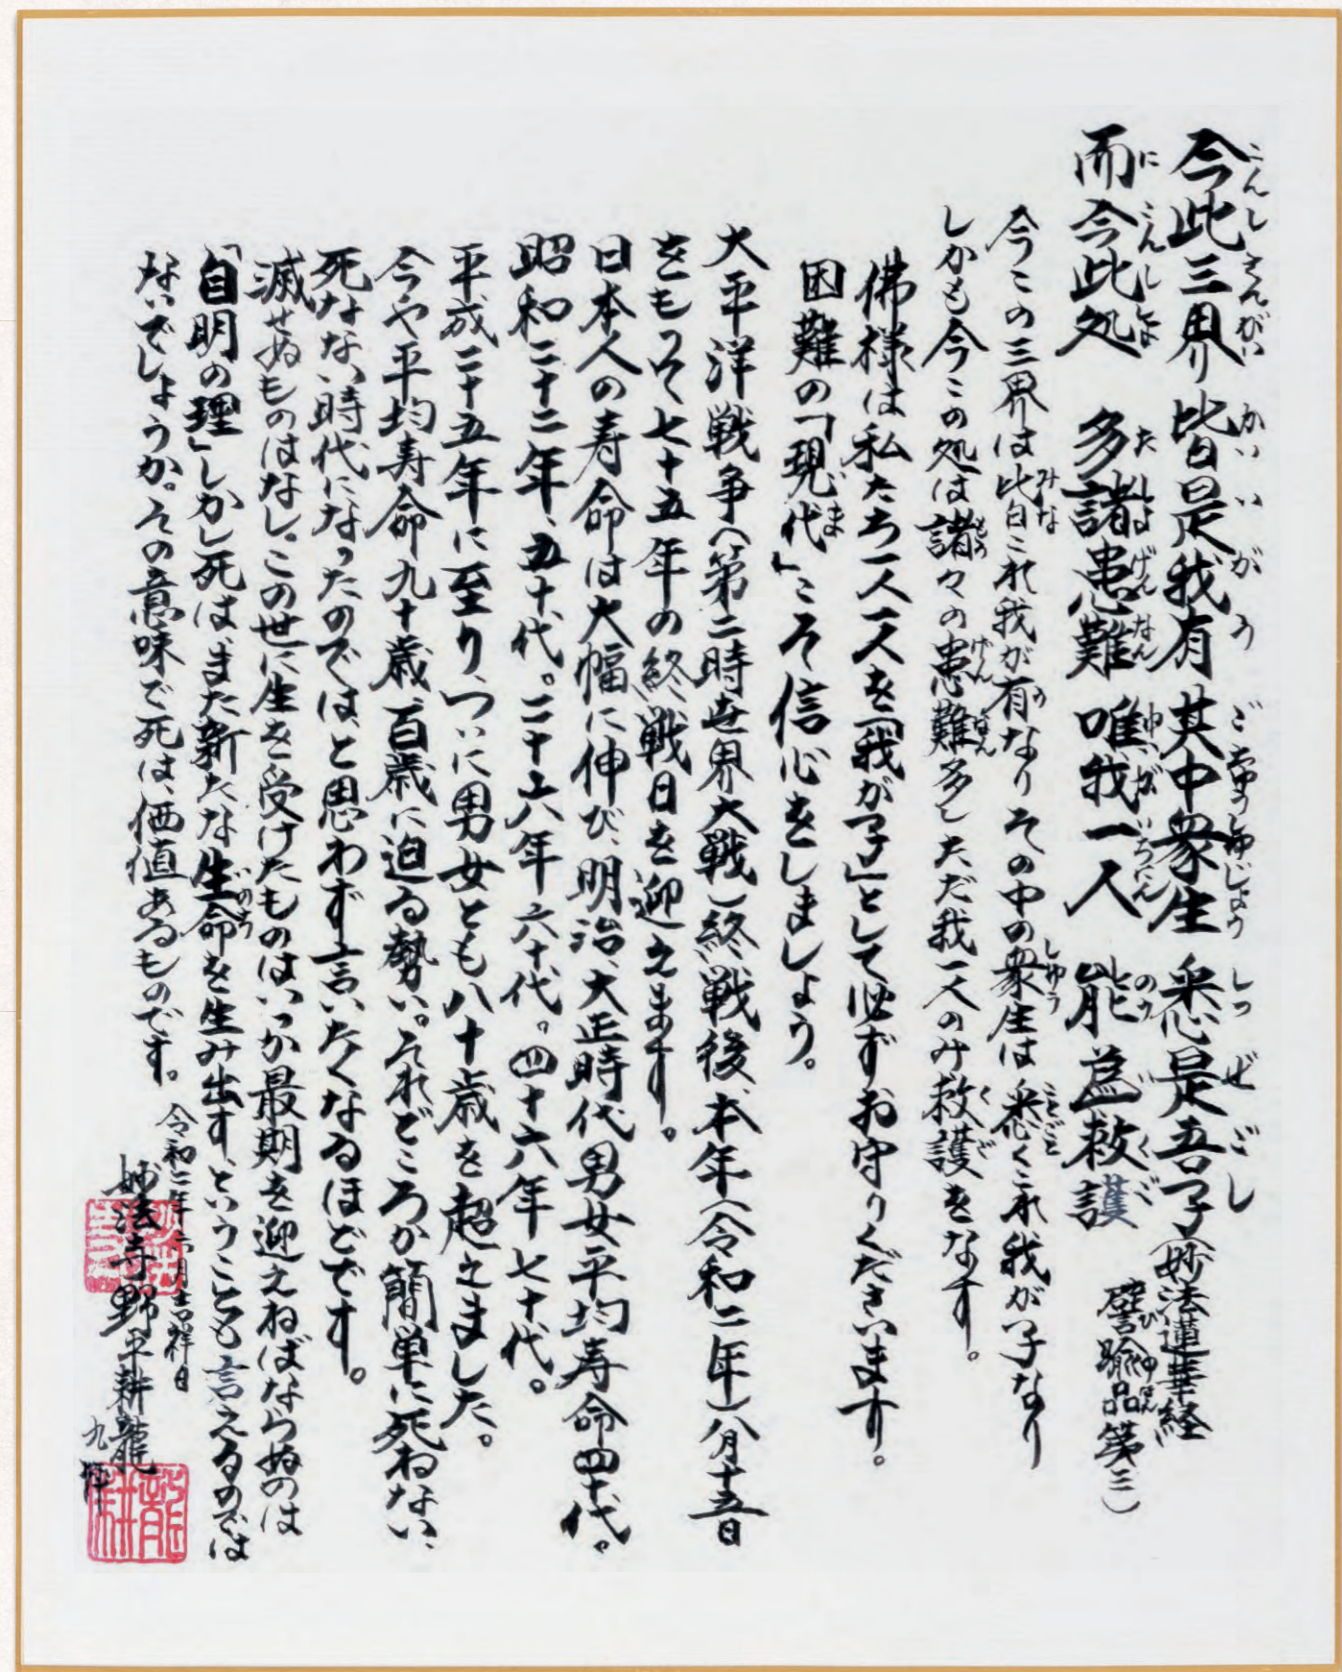 今此三界 皆是我有 其中衆生 悉是吾子(妙法蓮華経
而今此処 多諸患難 唯我一人 能為救護 譬喩品第三)
今この三界は皆これ我が有なりその中の衆生は悉くこれ我が子なり
しかも今この処は諸々の患難多しただ我一人のみ救護をなす。
佛様は私たち一人一人を「我が子」として必ずお守りくださいます。
困難の「現代」こそ信心をしましょう。
大平洋戦争(第二時世界大戦)終戦後、本年(令和二年)八月十五日
をもって七十五年の終戦日を迎えます。
日本人の寿命は大幅に伸び、明治、大正時代男女平均寿命四十代。
昭和二十二年、五十代。二十六年六十代。四十六年七十代。
平成二十五年に至り、ついに男女とも八十歳を超えました。
今や平均寿命九十歳、百歳に迫る勢い。それどころか簡単に死ねない、
死なない時代になったのでは、と思わず言いたくなるほどです。
滅せぬものはなし。この世に生を受けたものはいつか最期を迎えねばならぬのは
「自明の理」しかし死は、また新たな生命を生み出す、ということも言えるのでは
ないでしょうか。その意味で死は、価値あるものです。
令和二年 六月吉祥日
妙法寺 野平耕龍
九拝